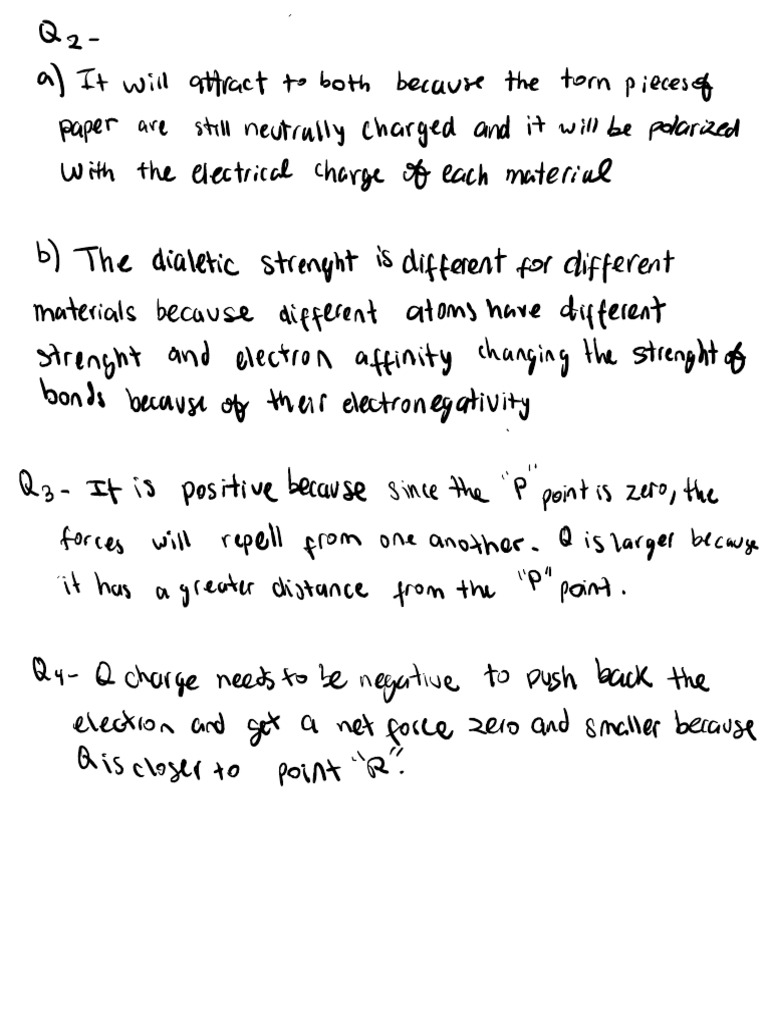 Q2-
a) It will attract to both because the torn pieces of
paper are still neutrally charged and it will be polarized
with the electrical charge of each material
b) The dialetic strenght is different for different
materials because different atoms have different
strenght and electron affinity changing the strenght of
bonds because of their electronegativity
Q3- It is positive because since the "P" point is zero, the
forces will repell from one another. Q is larger because
it has a greater distance from the "P" point.
Q4- Q charge needs to be negative to push back the
electron and get a net force zero and smaller because
Q is closer to point "R".